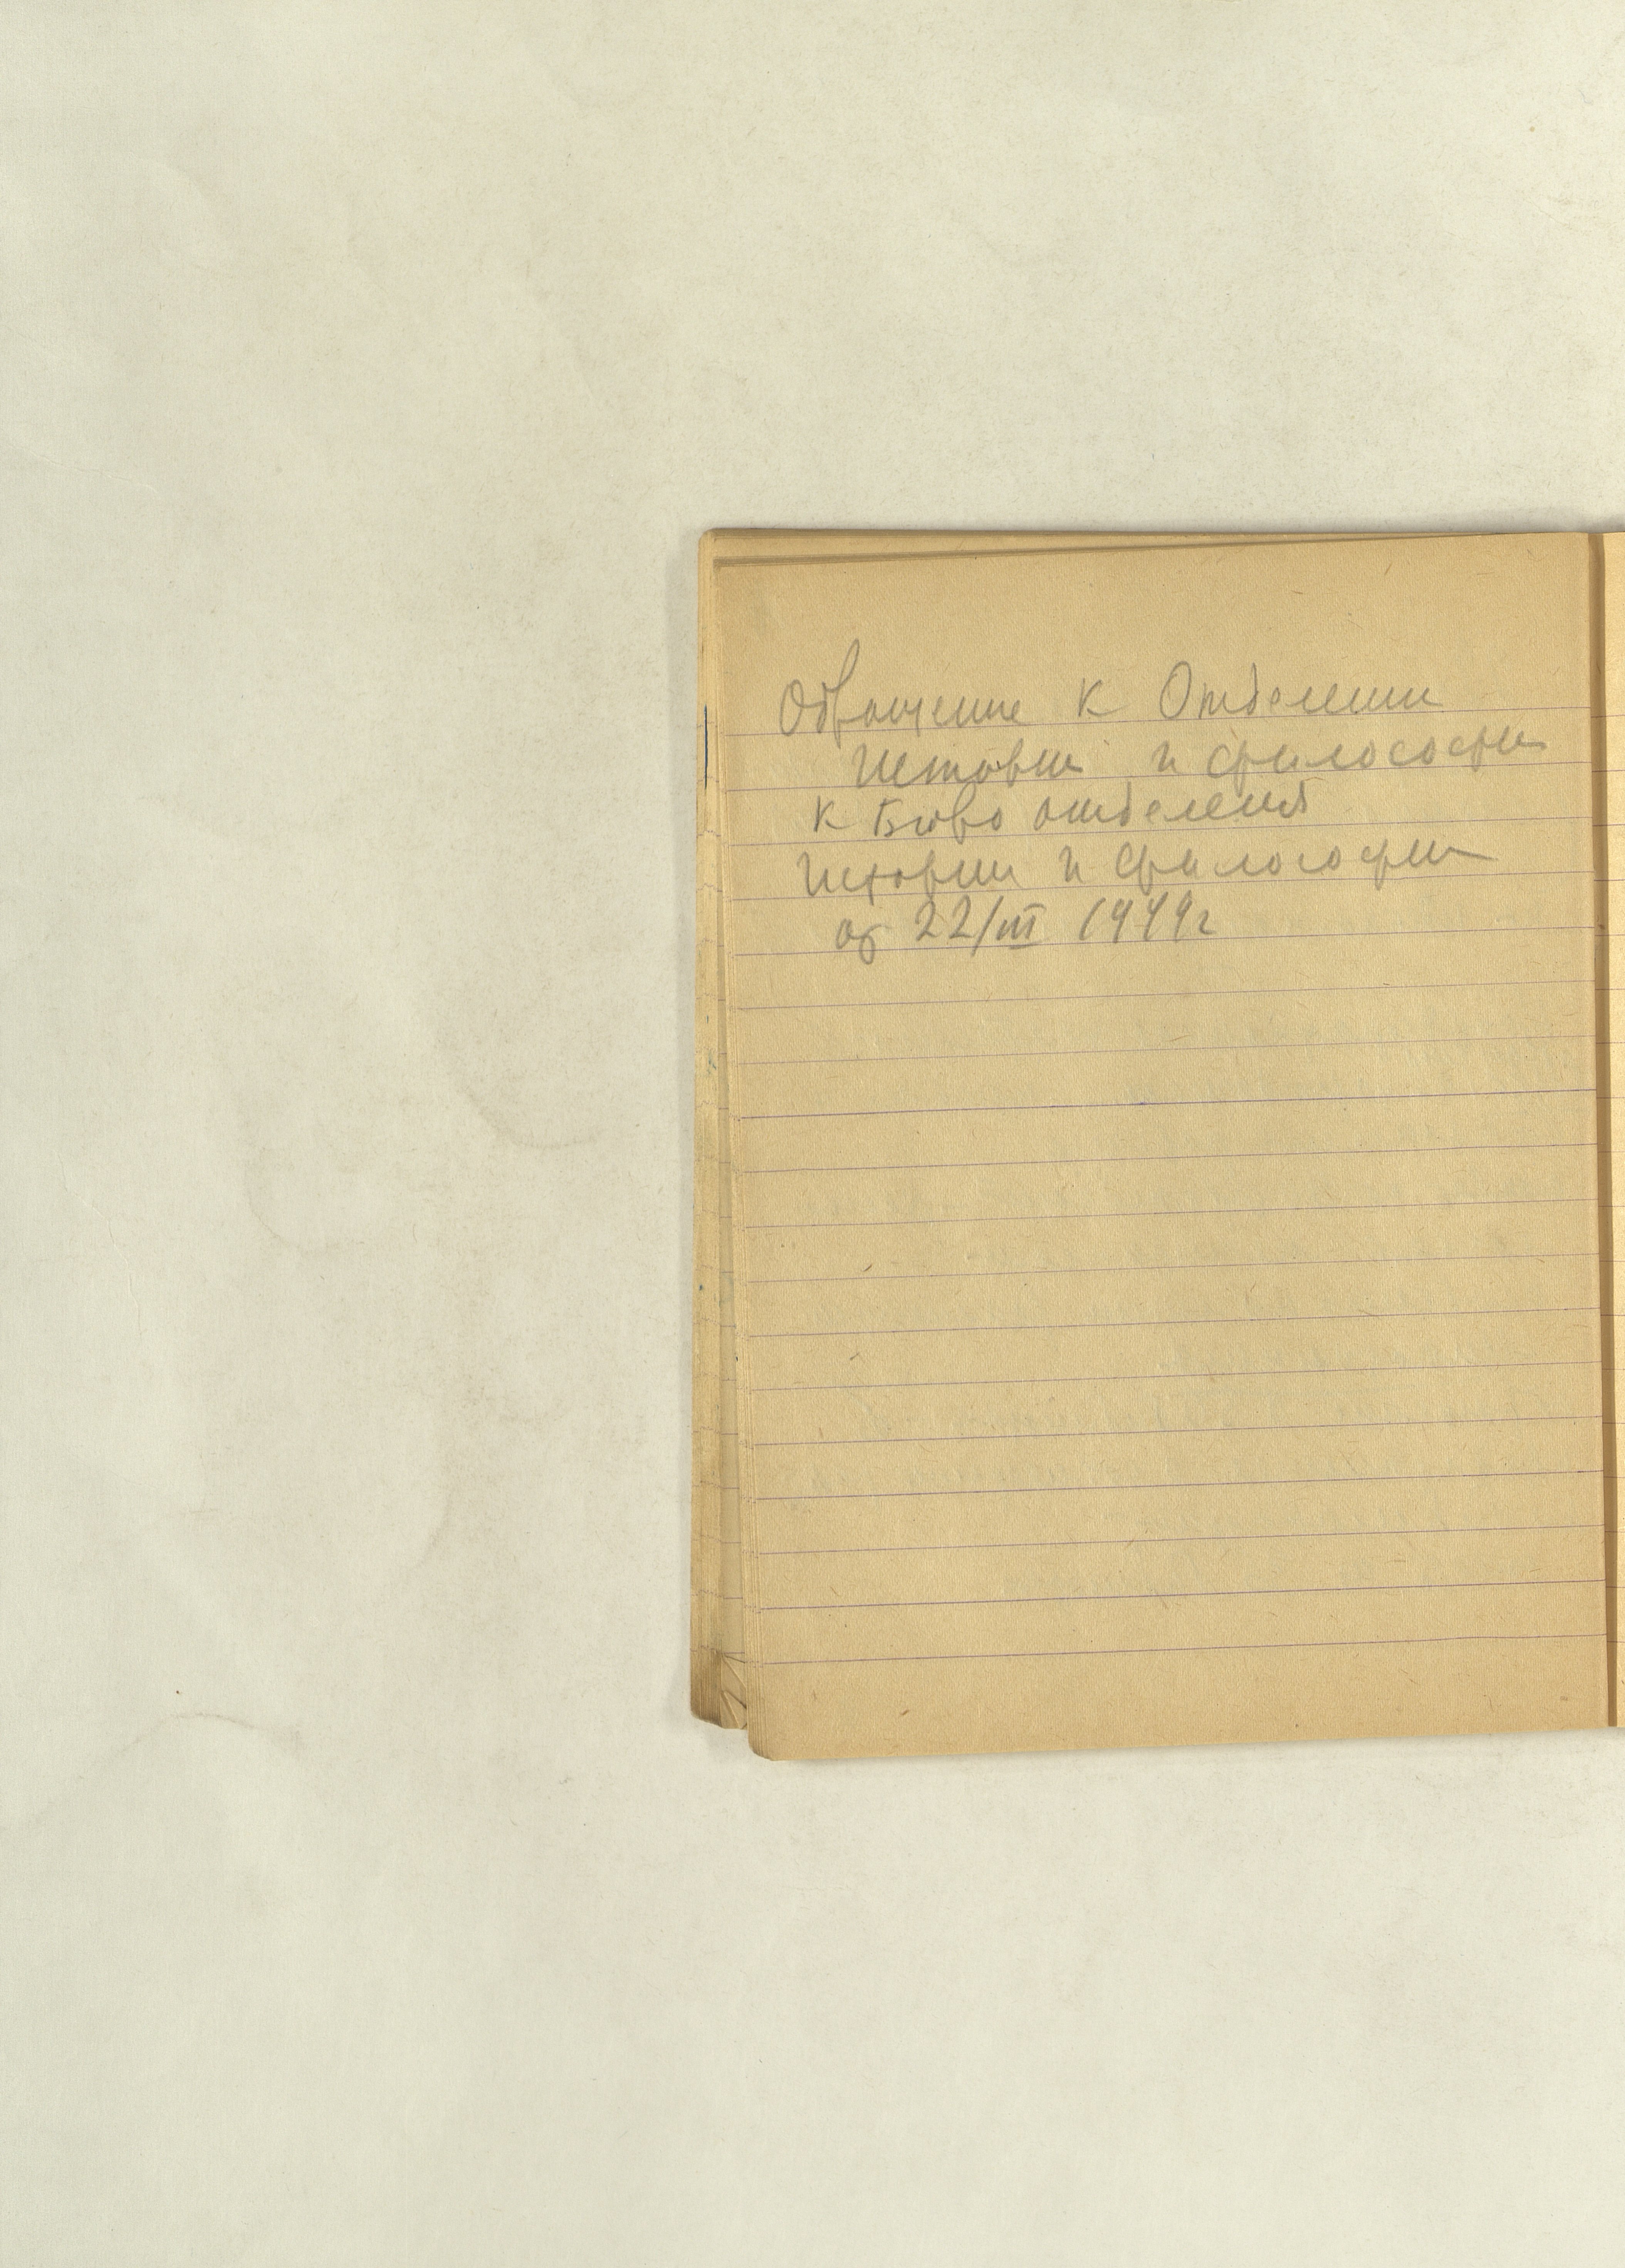 Обращение к Отделении
Истории и философии
к Бюро отделения
Истории и философии
от 22/III 1949г